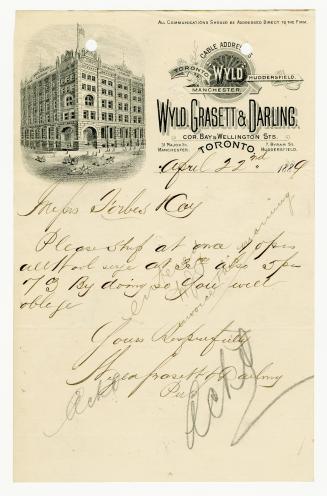 ALL COMMUNICATIONS SHOULD BE ADDRESSED DIRECT TO THE FIRM.
CABLE ADDRESS
WYLD
TORONTO
HUDDERSFIELD.
MANCHESTER.
WYLD, GRASETT & DARLING,
COR. BAY & WELLINGTON STS.
31 MAJOR ST. MANCHESTER.
TORONTO
7. BYRAM ST. HUDDERSFIELD.
April 22nd 1889
Messrs Forbes
Please ship at once 4 pces
all Wool serge at also 5 pcs
73 By doing so you will
oblige
Yours Respectfully
Wyld Grasett & Darling
Per
Ackd
Ackd